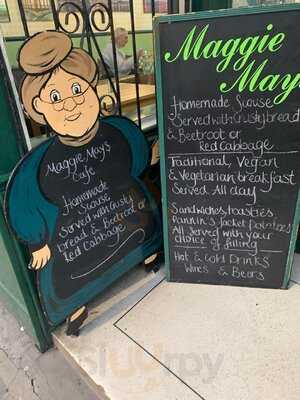 Maggie May's
Cafe
Homemade
Scouse
Served with crusty
bread & Beetroot or
Red Cabbage
Maggie
May's
Homemade Scouse
Served with Crusty bread
& Beetroot or
Red Cabbage
Traditional, Vegan
& Vegetarian breakfast
Served All day
Sandwiches, toasties,
Pannini's Jacket potatoes
All Served with your
choice of filling
Hot & Cold Drinks
Wines & Beers